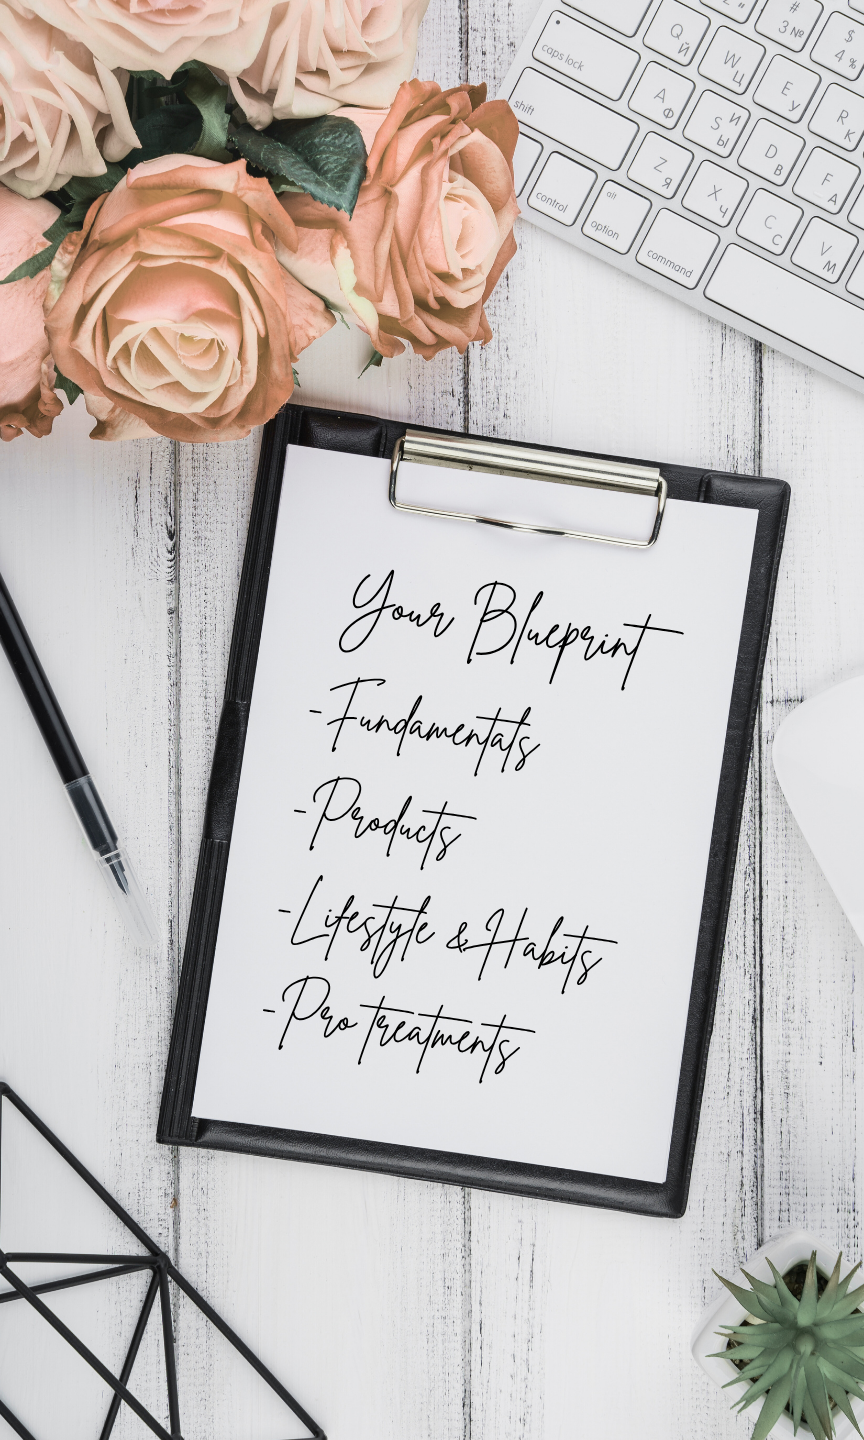 # 3 №
$ 4 %
Q Й
W Ц
E У
R К
caps lock
A Ф
S Ы
D В
F А
shift
Z Я
X Ч
C С
V М
control
alt
option
command
Your Blueprint
-Fundamentals
-Products
-Lifestyle & Habits
-Pro treatments